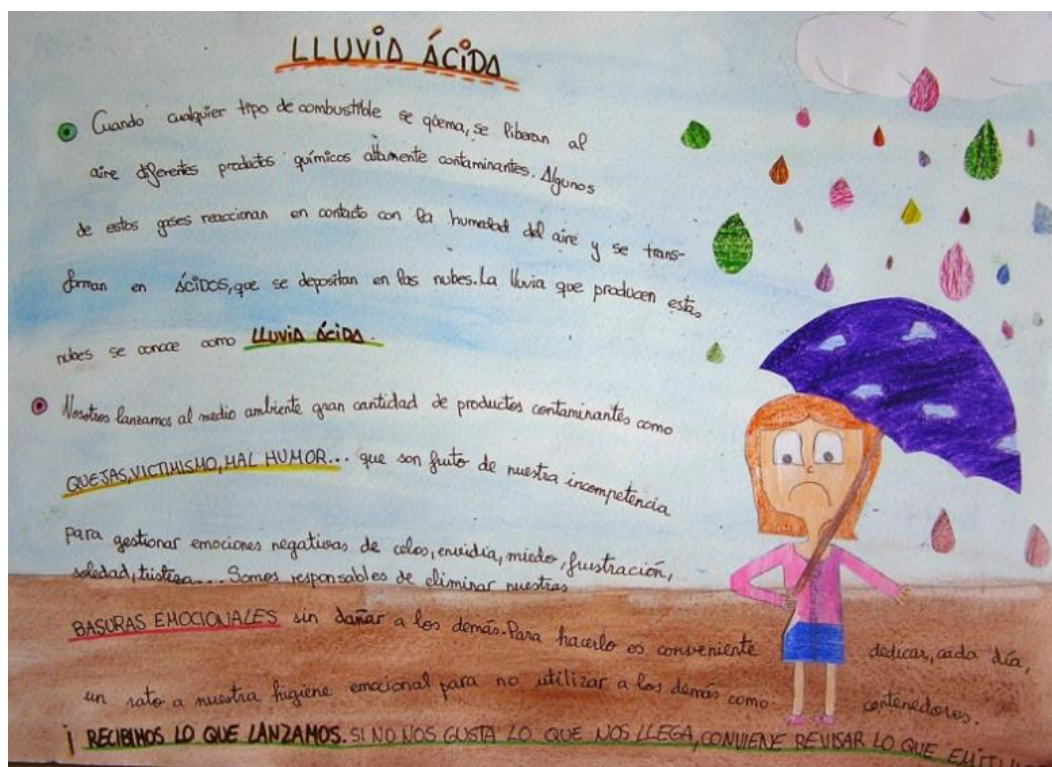 LLUVIA ÁCIDA
Cuando cualquier tipo de combustible se quema, se liberan al
aire diferentes productos químicos altamente contaminantes. Algunos
de estos gases reaccionan en contacto con la humedad del aire y se trans-
forman en ÁCIDOS, que se depositan en las nubes. La lluvia que producen estas
nubes se conoce como LLUVIA ÁCIDA.
Nosotros lanzamos al medio ambiente gran cantidad de productos contaminantes como
QUEJAS, VICTIMISMO, MAL HUMOR... que son fruto de nuestra incompetencia
para gestionar emociones negativas de celos, envidia, miedo, frustración,
soledad, tristeza.... Somos responsables de eliminar nuestras
BASURAS EMOCIONALES sin dañar a los demás. Para hacerlo es conveniente dedicar, cada día,
un rato a nuestra higiene emocional para no utilizar a los demás como contenedores.
¡ RECIBIMOS LO QUE LANZAMOS. SI NO NOS GUSTA LO QUE NOS LLEGA, CONVIENE REVISAR LO QUE